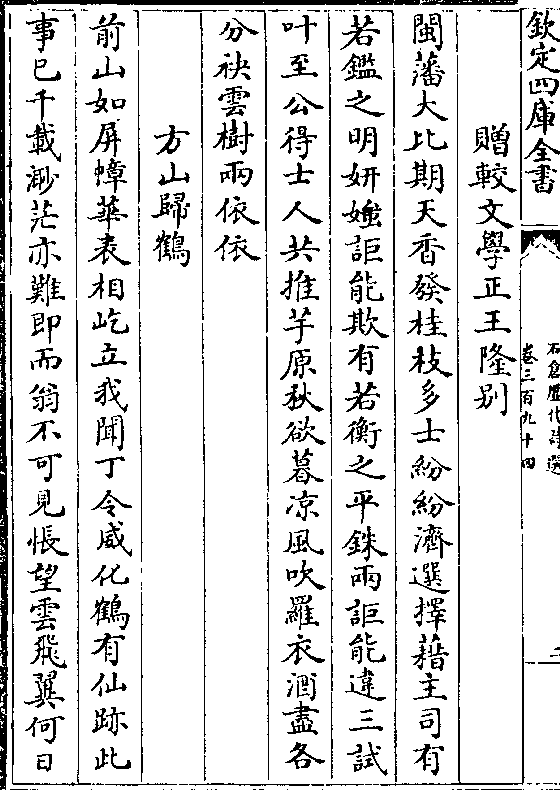 欽定四庫全書
石倉歷代詩選
卷三百九十四
贈較文學正王隆别
閩藩大比期天香發桂枝多士紛紛濟選擇藉主司有
若鑑之明妍媸詎能欺有若衡之平銖兩詎能違三試
叶至公得士人共推芋原秋欲暮凉風吹羅衣酒盡各
分袂雲樹兩依依
方山歸鶴
前山如屏幛華表相屹立我聞丁令威化鶴有仙跡此
事已千載渺茫亦難即而翁不可見悵望雲飛翼何日